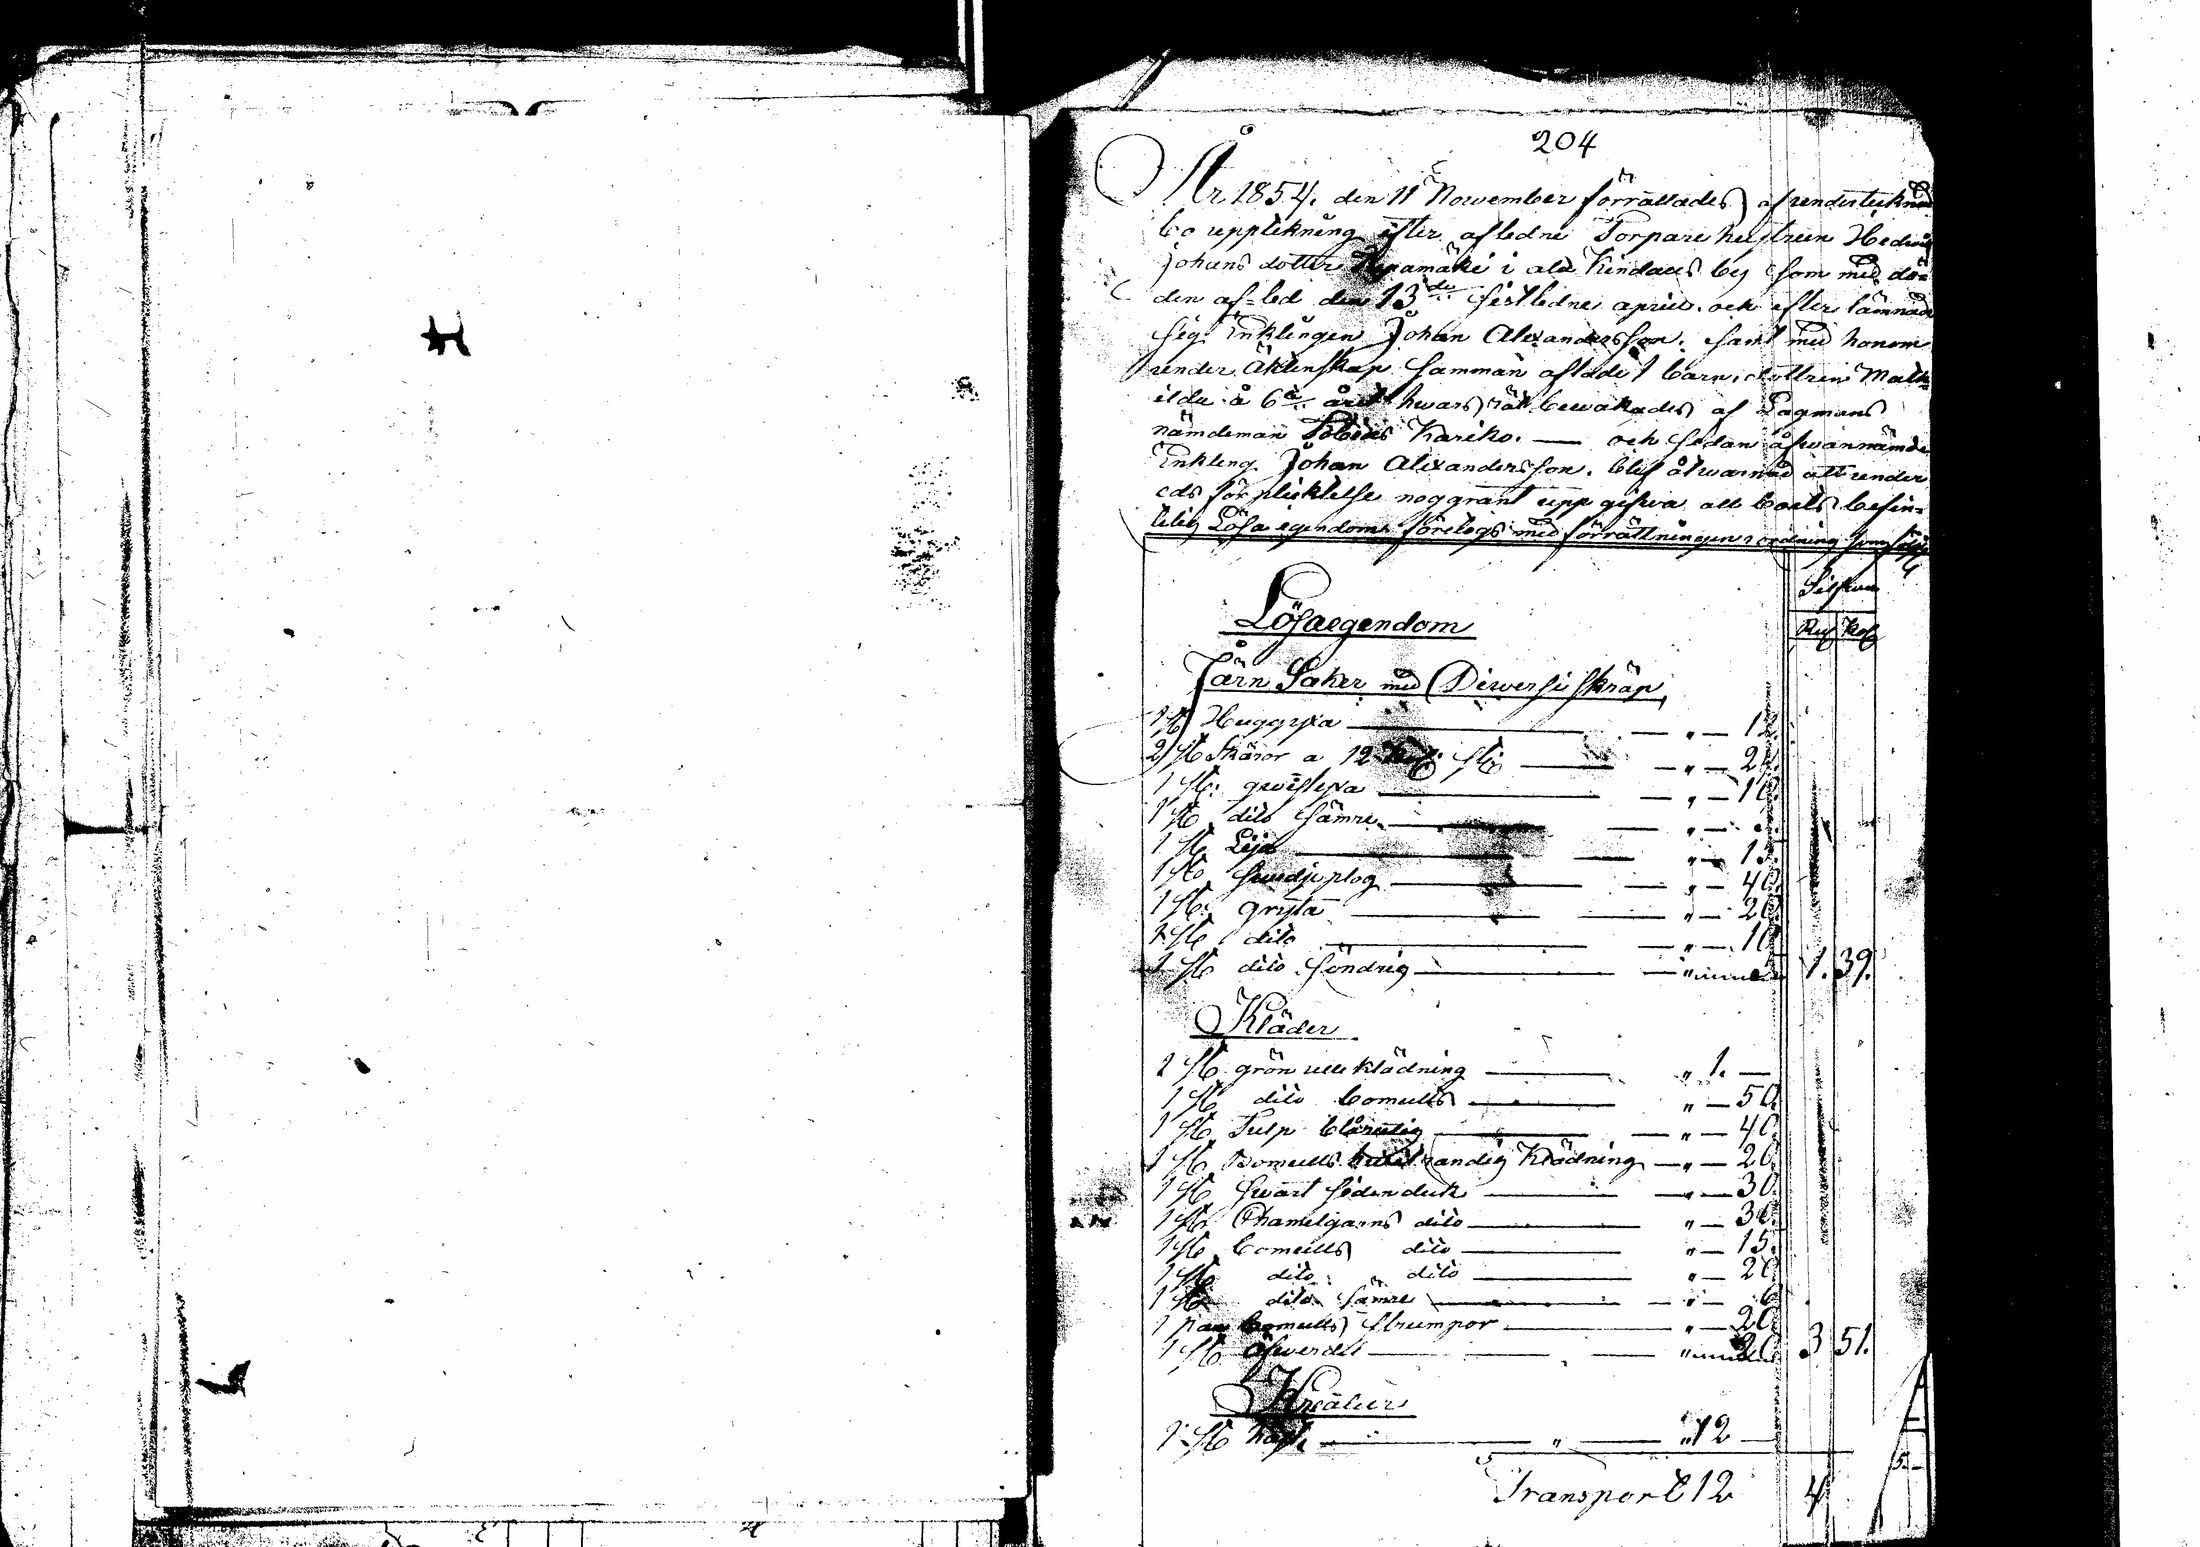 204
År 1854. den 11 November förrättades af undertecknad
bo uppteckning efter afledne Torpare hustrun Hedvig
Johans dotter i ala Kindais by som med dö=
den af=led den 13de sistledne april. och efter lämnade
sig Enklingen Johan Alexandersson. samt med honom
under Äktenskap samman aflade 1 barn, dottren Math=
ilda å 6te året hwars rätt bewakades af Lagmans
nämdeman Tobias Kariko. — och sedan åfwannämde
Enkling Johan Alexandersson. blef åtwarnad att under
eds förplicktelse noggrant upp gifwa all boets befin=
telig Lösa egendom. företogs med förrättningen i ordning som följer
Silfwer
Lösaegendom
Rub Kop
Järn Saker med Diwerse skräp
1 st Huggyxa — " — 12.
2 st Skäror a 12 Kop: st — " — 24.
1 st: — " — 10.
1 st dito sämre — " —
1 st Lija — " — 15.
1 st plog — " — 40.
1 st: gryta — " — 20.
1 st dito — " — 10.
1 st dito söndrig — " 1. 39.
Kläder
1 st grön ulle klädning — " 1. —
1 st dito bomulls — " — 50.
1 st Tulp — " — 40.
1 st Bomulls randig Klädning — " — 20.
1 st swart siden duk — " — 30.
1 st Chamelgarns dito — " — 30.
1 st bomulls dito — " — 15.
1 st dito dito — " — 20
1 st dito sämre — " — 6
1 par bomulls strumpor — " — 20.
1 st — " 20 3 51.
Kreatur
1 st — " " 12 —
Transport 12 4